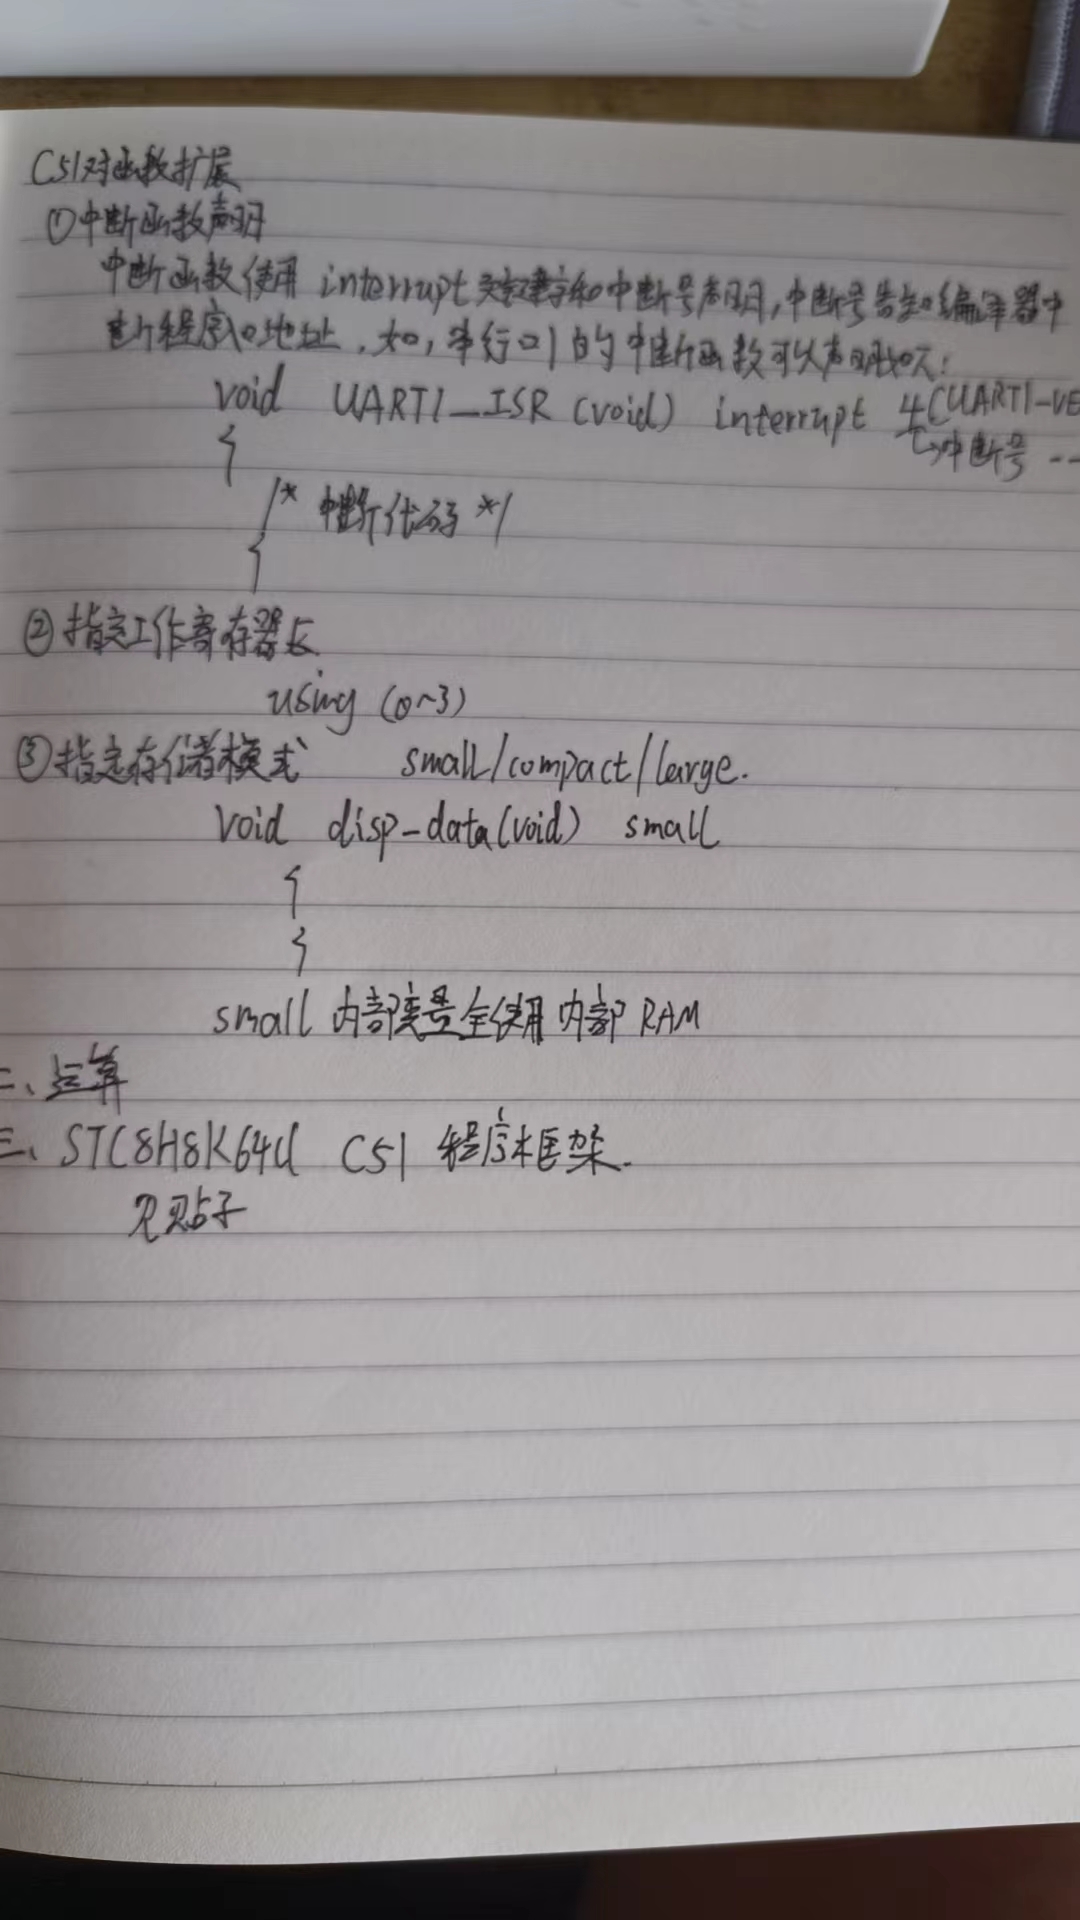 C51对函数扩展
①中断函数声明
中断函数使用 interrupt 关键字和中断号声明,中断号告知编译器中
断程序入口地址,如,串行口1的中断函数可以声明如下:
void UART1_ISR (void) interrupt 4(UART1-VE
{ ↳中断号 --
/* 中断代码 */
{
②指定工作寄存器区
using (0~3)
③指定存储模式 small/compact/large.
void disp-data(void) small
{
}
small 内部变量全使用内部 RAM
二、运算
三、STC8H8K64U C51 程序框架.
见贴子